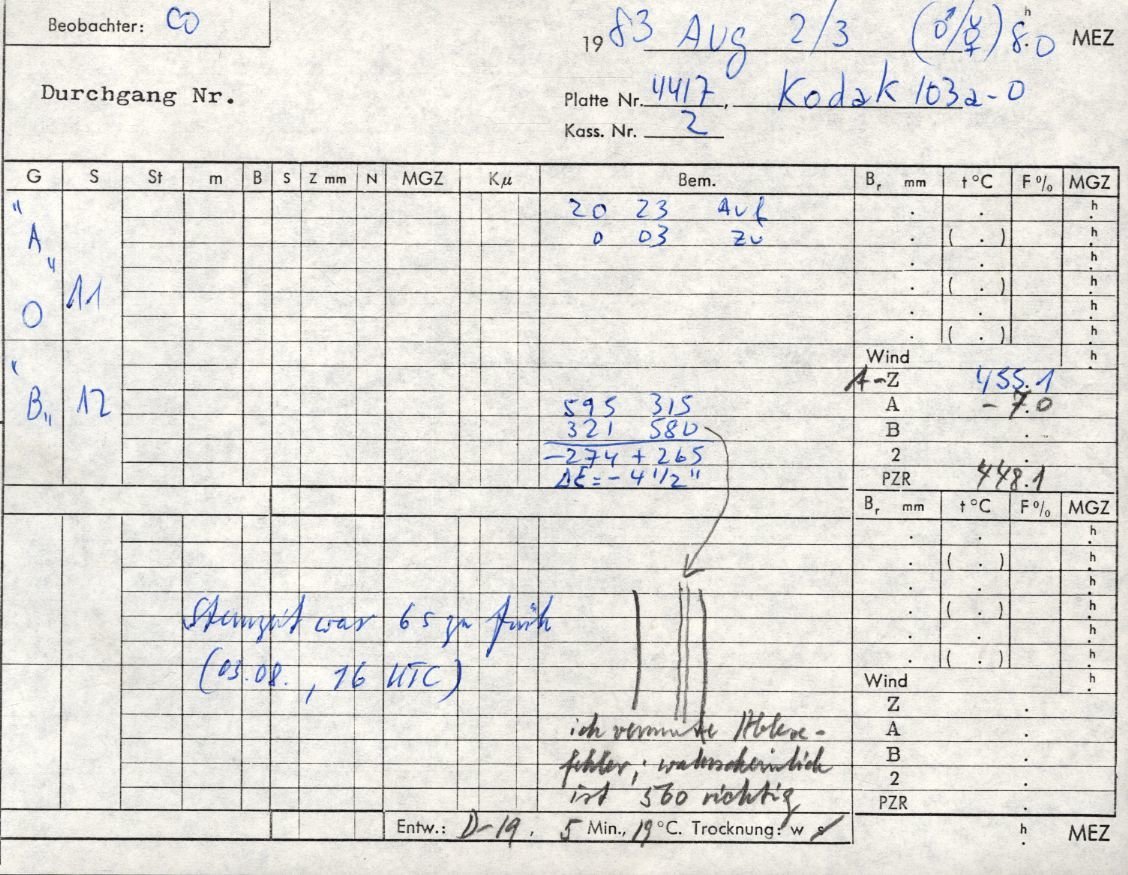 Beobachter: CO
19 83 Aug 2/3 (♂/☿) 8.0 h MEZ
Durchgang Nr.
Platte Nr. 4417, Kodak 103a-O
Kass. Nr. 2
G S St m B S Z mm N MGZ Kμ Bem. Br mm t °C F % MGZ
20 23 Auf . . h
"A" 0 03 Zu . ( . ) h
. . h
11 . ( . ) h
O . . h
. ( . ) h
Wind h
A-Z 455.1
"B" 12 595 315 A -7.0
321 580 B .
-274 +265 2 .
ΔE = -4 1/2" PZR 448.1
Br mm t °C F % MGZ
. . h
. ( . ) h
. . h
Sternzeit war 6s zu früh . ( . ) h
. . h
(03.08., 16 UTC) . ( . ) h
Wind h
Z .
ich vermute Ablese- A .
fehler; wahrscheinlich B .
ist 560 richtig 2 .
PZR .
Entw.: D-19, 5 Min., 19 °C. Trocknung: w s h MEZ